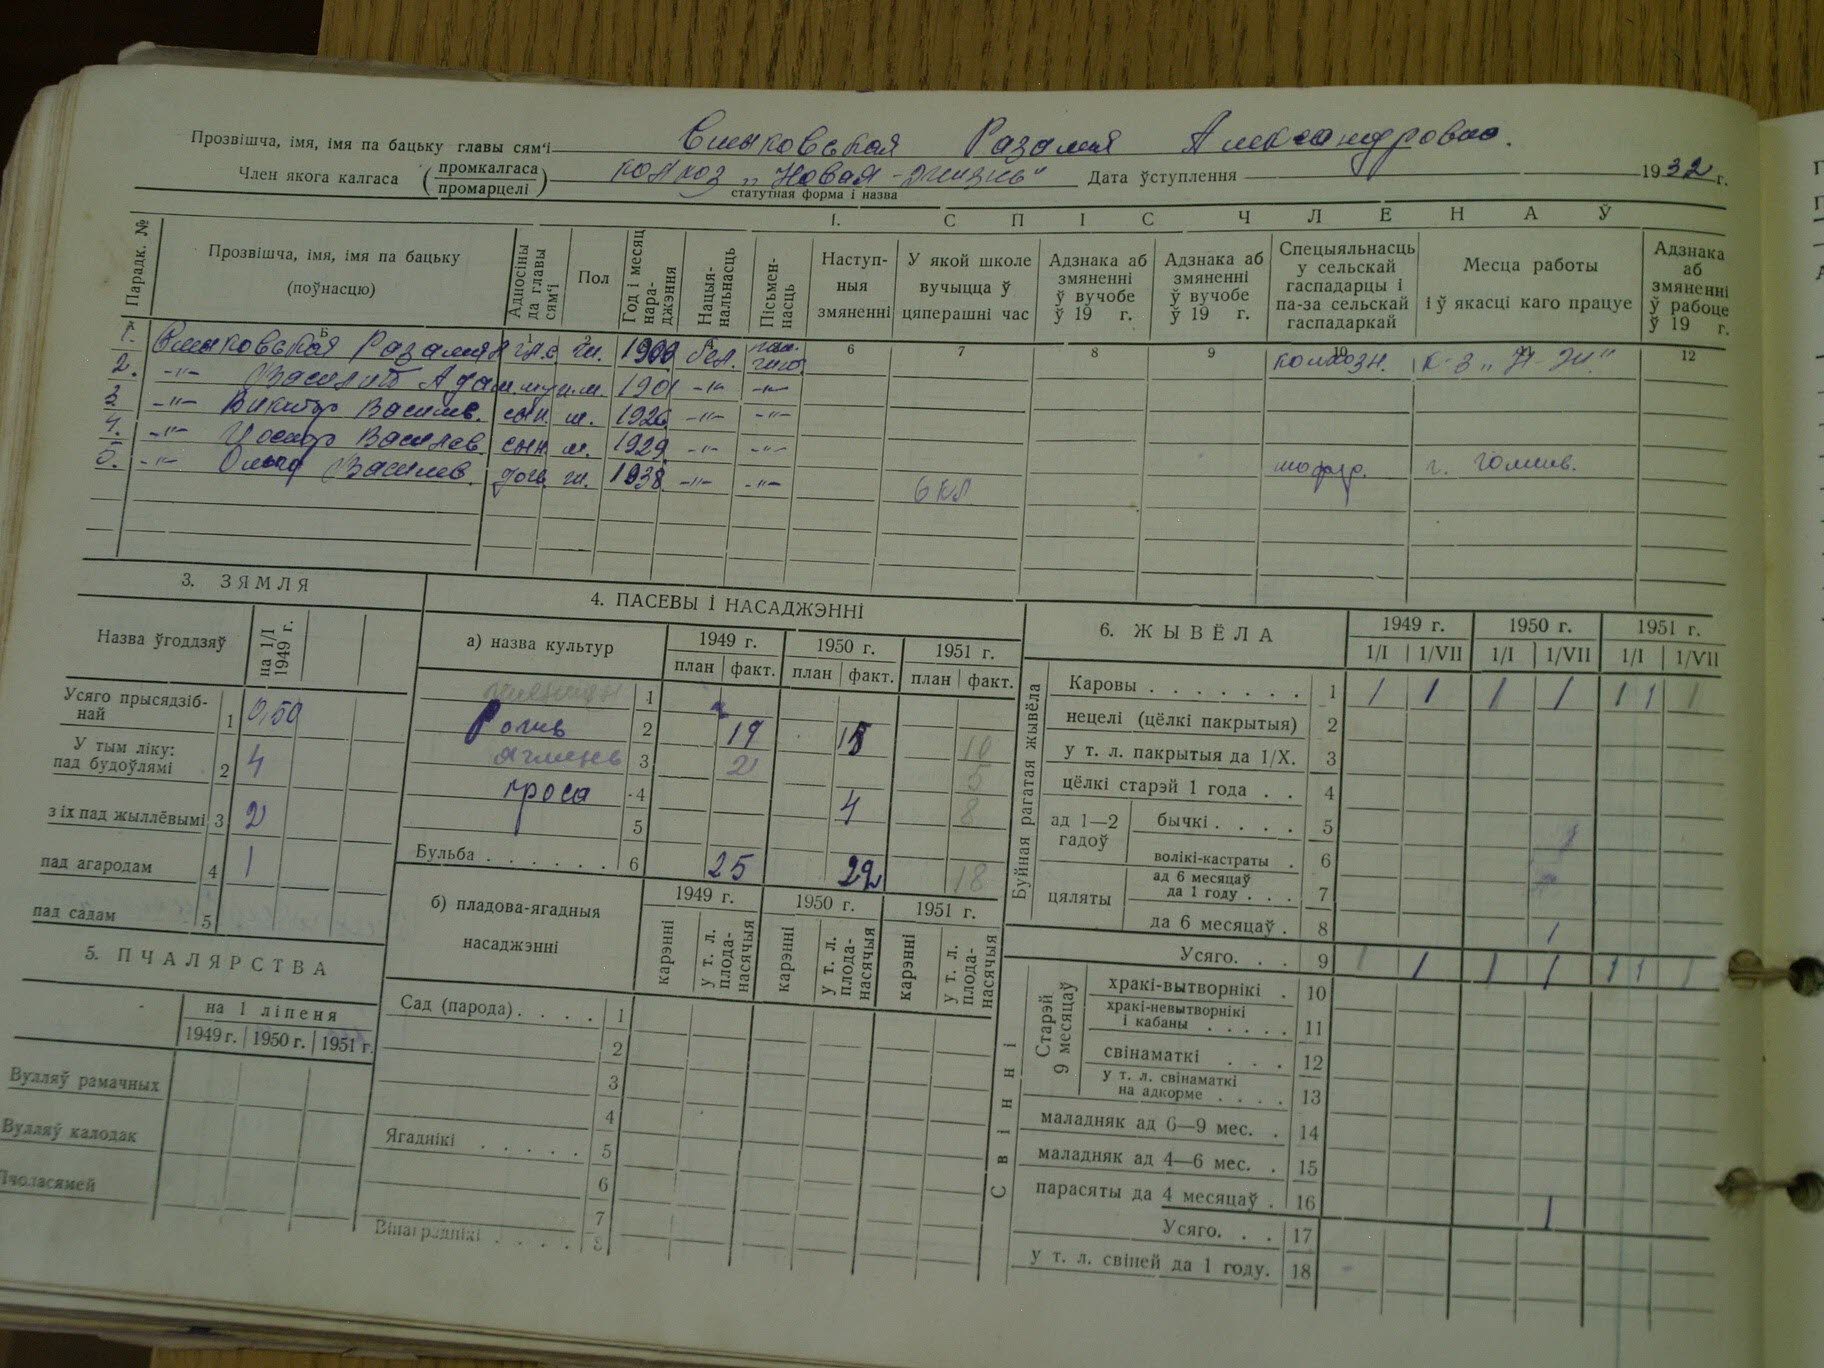 Прозвішча, імя, імя па бацьку главы сям'і Разалия Александровна.
Член якога калгаса (промкалгаса промарцелі) колхоз „Новая-жизнь" Дата ўступлення 1932 г.
статутная форма і назва
І. СПІС ЧЛЕНАЎ
Парадк. №
Прозвішча, імя, імя па бацьку (поўнасцю)
Адносіны да главы сям'і
Пол
Год і месяц нараджэння
Нацыянальнасць
Пісьменнасць
Наступныя змяненні
У якой школе вучыцца ў цяперашні час
Адзнака аб змяненні ў вучобе ў 19 г.
Адзнака аб змяненні ў вучобе ў 19 г.
Спецыяльнасць у сельскай гаспадарцы і па-за сельскай гаспадаркай
Месца работы і ў якасці каго працуе
Адзнака аб змяненні ў рабоце ў 19 г.
Б 6 7 8 9 10 12
1. Разалия гл.с ж. 1900 бел. колхозн. к-з „Н-Ж."
2. -"- Василий Адам. муж м. 1901 -"- -"-
3 -"- Виктор Васильев. сын м. 1926 -"- -"-
4. -"- Иосиф Васильев. сын м. 1929 -"- -"-
5. -"- Ольга Васильев. доч. ж. 1938 -"- -"- 6 кл
шофер. г.
3. ЗЯМЛЯ
Назва ўгоддзяў на 1/I 1949 г.
Усяго прысядзібнай 1 0,50
У тым ліку:
пад будоўлямі 2 4
з іх пад жыллёвымі 3 2
пад агародам 4 1
пад садам 5
5. ПЧАЛЯРСТВА
на 1 ліпеня
1949 г. 1950 г. 1951 г.
Вулляў рамачных
Вулляў калодак
Пчоласямей
4. ПАСЕВЫ І НАСАДЖЭННІ
а) назва культур 1949 г. 1950 г. 1951 г.
план факт. план факт. план факт.
1
2 19 15 10
ячмень 3 2 5
проса 4 4 8
5
Бульба 6 25 22 18
б) пладова-ягадныя насаджэнні 1949 г. 1950 г. 1951 г.
карэнні у т. л. плоданасячыя карэнні у т. л. плоданасячыя карэнні у т. л. плоданасячыя
Сад (парода) 1
2
3
4
Ягаднікі 5
6
7
Вінаграднікі 8
6. ЖЫВЁЛА 1949 г. 1950 г. 1951 г.
1/I 1/VII 1/I 1/VII 1/I 1/VII
Буйная рагатая жывёла
Каровы 1 1 1 1 1 1 1 1
нецелі (цёлкі пакрытыя) 2
у т. л. пакрытыя да 1/X. 3
цёлкі старэй 1 года 4
ад 1—2 гадоў бычкі 5
волікі-кастраты 6
цяляты ад 6 месяцаў да 1 году 7
да 6 месяцаў 8 1
Усяго 9 1 1 1 1 1 1 1
Свінні
Старэй 9 месяцаў
хракі-вытворнікі 10
хракі-невытворнікі і кабаны 11
свінаматкі 12
у т. л. свінаматкі на адкорме 13
маладняк ад 6—9 мес. 14
маладняк ад 4—6 мес. 15
парасяты да 4 месяцаў 16 1
Усяго 17
у т. л. свіней да 1 году. 18